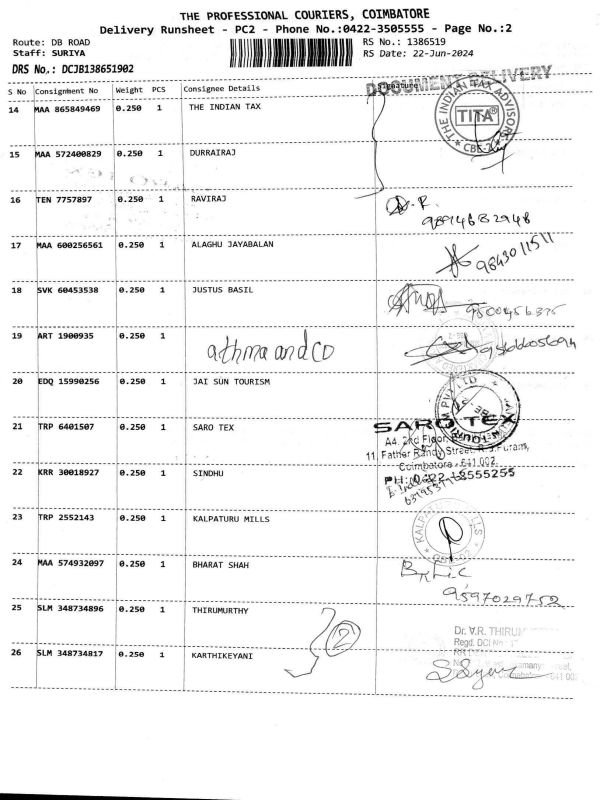 THE PROFESSIONAL COURIERS, COIMBATORE
Delivery Runsheet - PC2 - Phone No.:0422-3505555 - Page No.:2
Route: DB ROAD
Staff: SURIYA
RS No.: 1386519
RS Date: 22-Jun-2024
DRS No.: DCJB138651902
DOCUMENT DELIVERY
S No Consignment No Weight PCS Consignee Details Signature
14 MAA 865849469 0.250 1 THE INDIAN TAX
THE INDIAN TAX ADVISORS
TITA®
15 MAA 572400829 0.250 1 DURRAIRAJ
16 TEN 7757897 0.250 1 RAVIRAJ
9894682948
17 MAA 600256561 0.250 1 ALAGHU JAYABALAN
9843011511
18 SVK 60453538 0.250 1 JUSTUS BASIL
19 ART 1900935 0.250 1
athma and co
20 EDQ 15990256 0.250 1 JAI SUN TOURISM
21 TRP 6401507 0.250 1 SARO TEX
SARO TEX
A4, 2nd Floor,
11, Father Randy Street, R.S.Puram,
Coimbatore - 641 002
22 KRR 30018927 0.250 1 SINDHU
23 TRP 2552143 0.250 1 KALPATURU MILLS
24 MAA 574932097 0.250 1 BHARAT SHAH
9597029752
25 SLM 348734896 0.250 1 THIRUMURTHY
2
Dr. V.R. THIRUM
26 SLM 348734817 0.250 1 KARTHIKEYANI